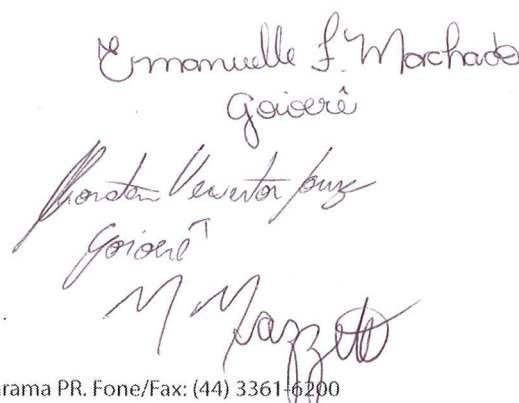 Emanuelle F. Machado
Goioerê
Goioerê
M Mazzetto
arama PR. Fone/Fax: (44) 3361-6200